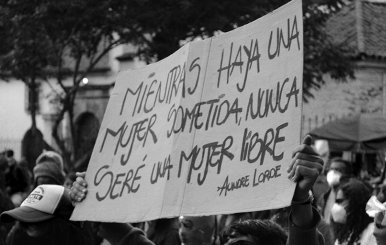 MIENTRAS HAYA UNA
MUJER SOMETIDA, NUNCA
SERÉ UNA MUJER LIBRE
AUNDRE LORDE